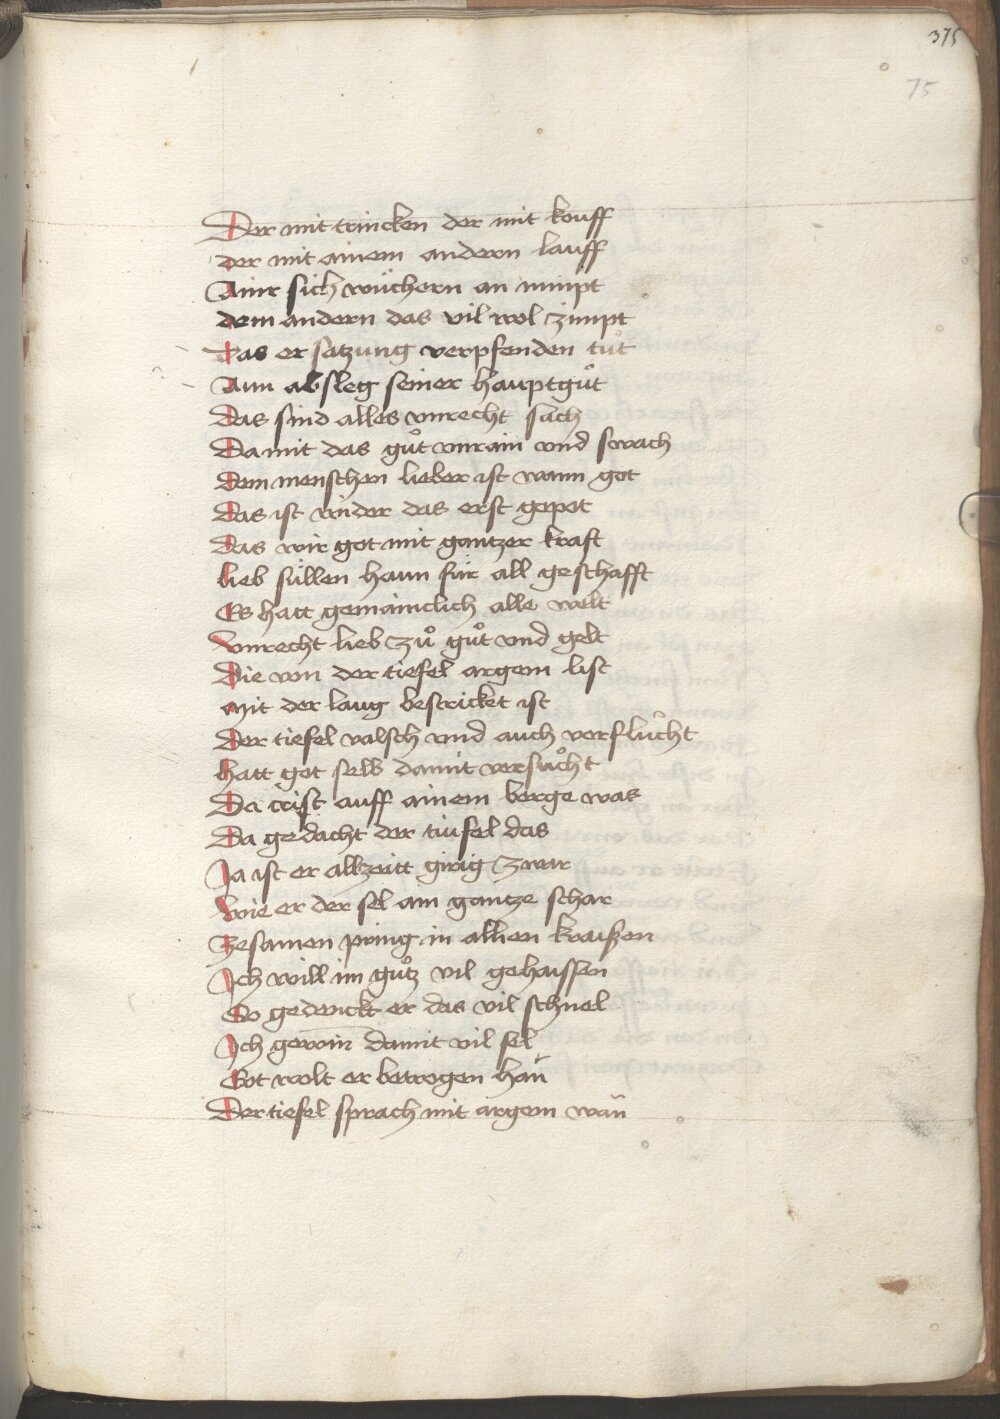 375
75
Der mit trincken der mit kouff
der mit ainem andern lauff
Ainr sich wuͤchern an nimpt
dem andern das vil wol zimpt
das er satzung verpfenden tuͦt
Ann absleg seiner hauptguͦt
Das sind alles vnrecht sach
Da mit das guͦt vnrain vnd swach
Dem menschen lieber ist wann got
Das ist wider das erst gepot
Das wir got mit gantzer kraft
lieb süllen hann für all geschafft
Es hatt gemainclich alle welt
Vnrecht lieb zuͦ guͦt vnd gelt
Die von der tiefel argem list
Mit der laug bestricket ist
Der tiefel valsch vnd auch verfluͦcht
hatt got selb damit versuͦcht
Da crist auff ainem berge was
Da gedacht der tiufel das
Ja ist er allzeitt girig zwar
Wie er der sel ain gantze schar
Zesamen pring in allen kraißen
Ich will im guͦtz vil gehaissen
So gedenckt er das vil schnel
Ich gewin damit vil sel
Got wolt er betrogen han̄
Der tiefel sprach mit argem wan̄